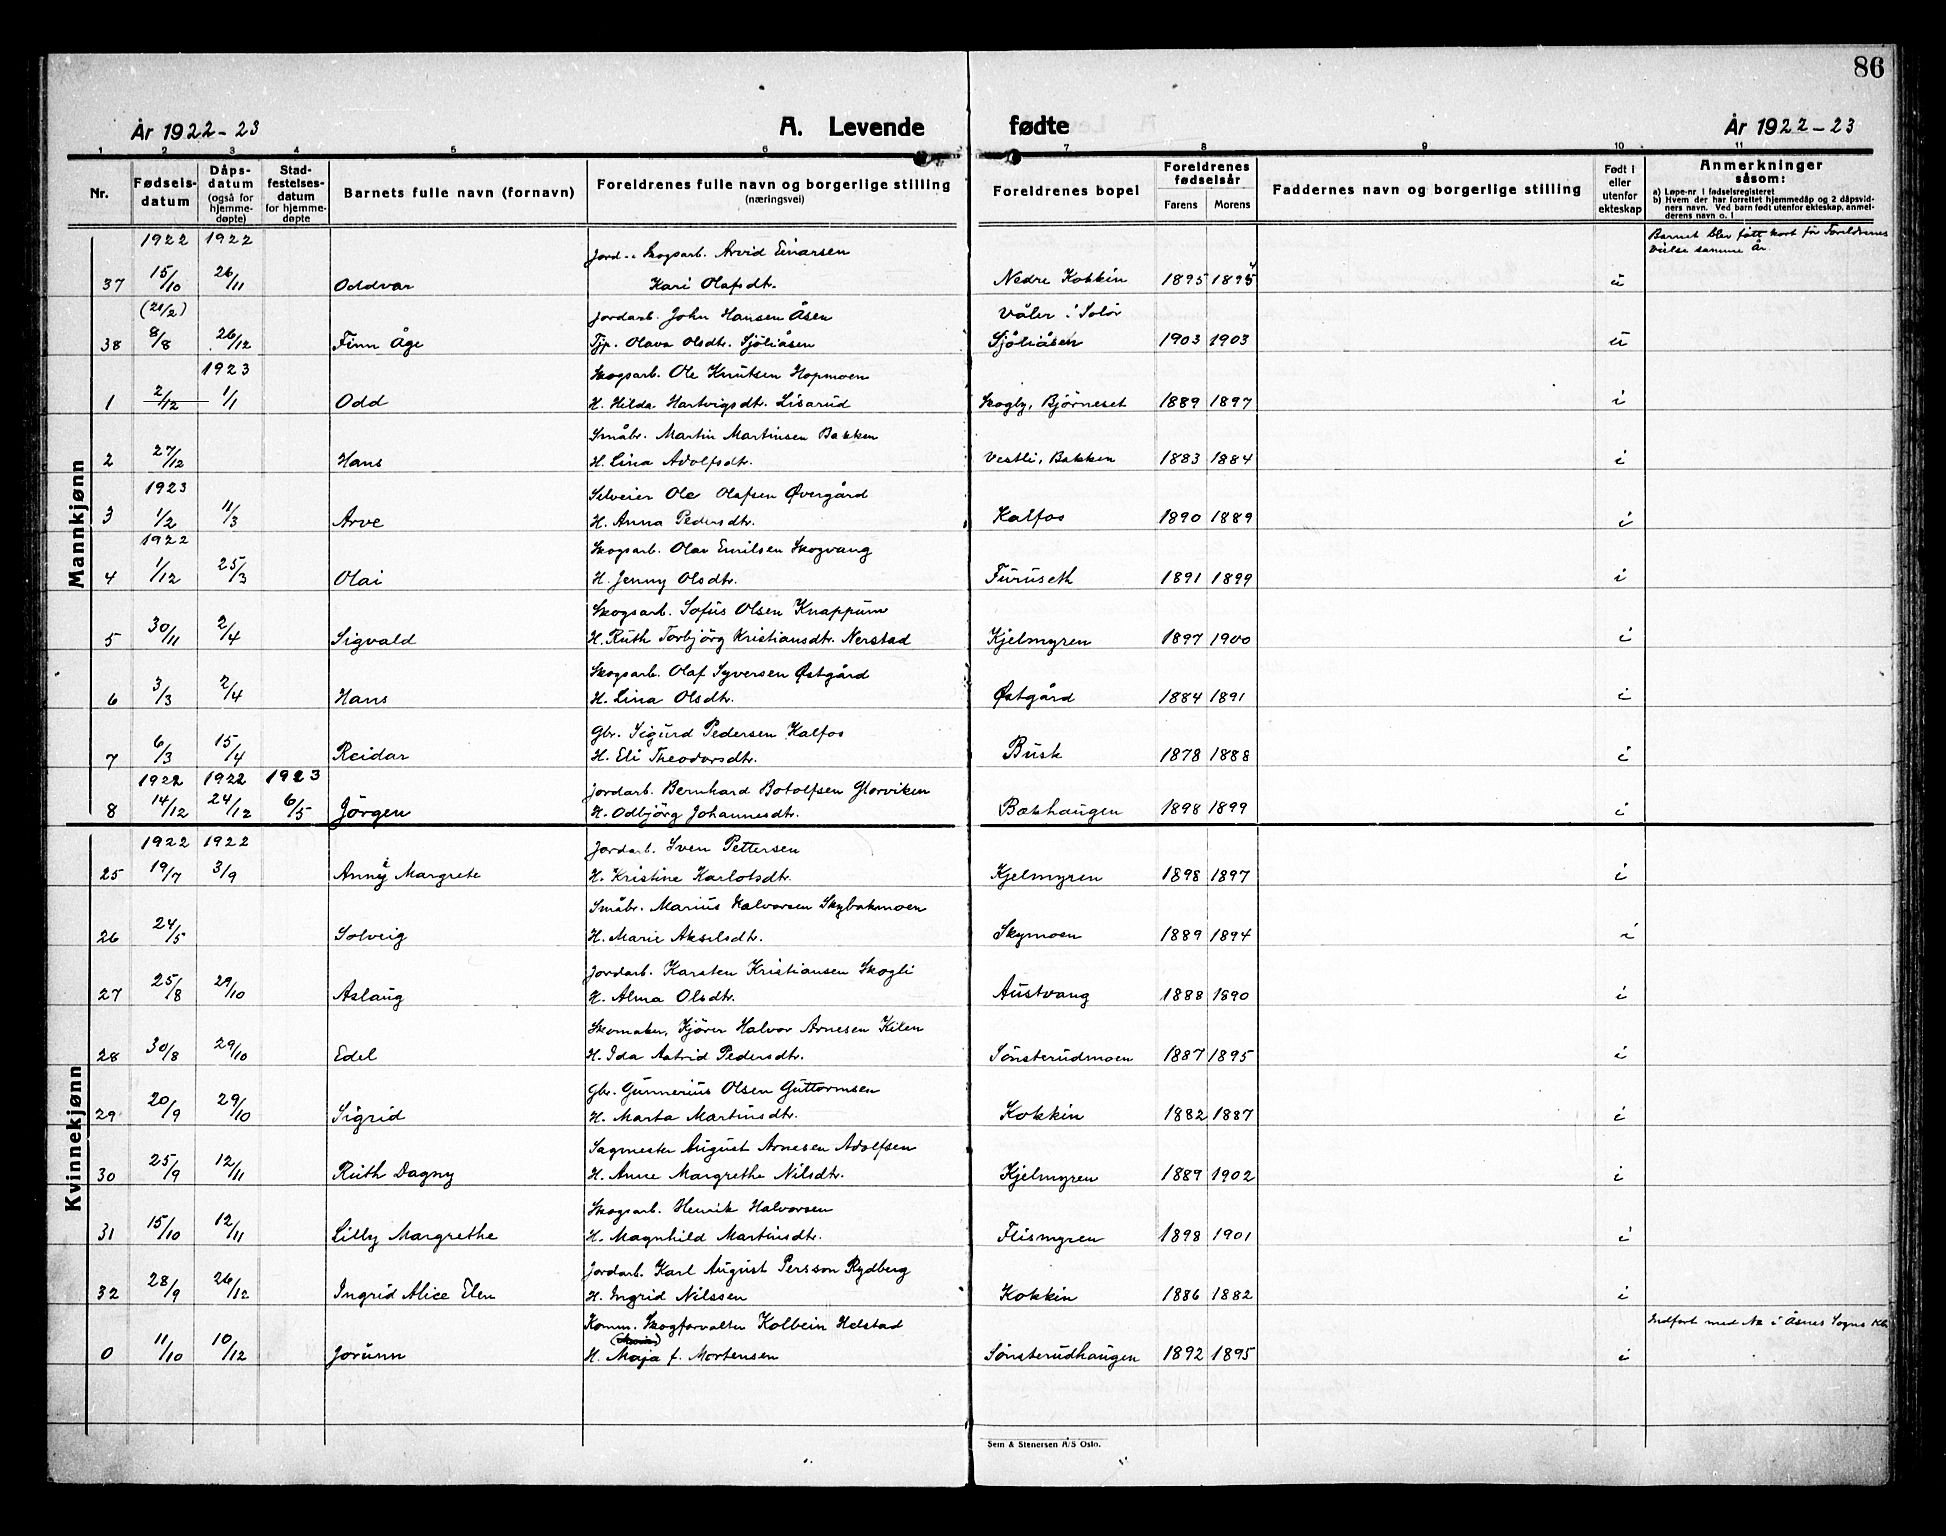 86
År 1922-23 A. Levende fødte År 1922-23
1 2 3 4 5 6 7 8 9 10 11
Nr. Fødselsdatum Dåpsdatum (også for hjemmedøpte) Stadfestelsesdatum for hjemmedøpte Barnets fulle navn (fornavn) Foreldrenes fulle navn og borgerlige stilling (næringsvei) Foreldrenes bopel Foreldrenes fødselsår Farens Morens Faddernes navn og borgerlige stilling Født i eller utenfor ekteskap Anmerkninger såsom:
a) Løpe-nr i fødselsregisteret
b) Hvem der har forrettet hjemmedåp og 2 dåpsvidners navn. Ved barn født utenfor ekteskap, anmelderens navn o. l
Mannkjønn
1922 1922 Jord- Skogsarb. Arvid Einarsen Barnet blev født kort før Foreldrenes
vielse samme år
37 15/10 26/11 Oddvar Kari Olafsdtr. Nedre Kokkin 1895 1895 4 u
(21/2) Jordarb. John Hansen Åsen Våler i Solør
38 8/8 26/12 Finn Åge Tjp. Olava Olsdtr. Sjöliåsen Sjöliåsen 1903 1903 u
1923 Skogsarb. Ole Knutsen Hopmoen
1 2/12 1/1 Odd H. Hilda Hartvigsdtr. Lisarud Skogly, Björneset 1889 1897 i
Småbr. Martin Martinsen Bakken
2 27/12 Hans H. Lina Adolfsdtr. Vestli, Bakken 1883 1884 i
1923 Selveier Ole Olafsen Øvergård
3 1/2 11/3 Arve H. Anna Pedersdtr. Kalfos 1890 1889 i
1922 Skogsarb. Olav Emilsen Skogvang
4 1/12 25/3 Olai H. Jenny Olsdtr. Furuseth 1891 1899 i
Skogsarb. Sofus Olsen Knappum
5 30/11 2/4 Sigvald H. Ruth Torbjörg Kristiansdtr. Nerstad Kjelmyren 1897 1900 i
Skogsarb. Olaf Syversen Østgård
6 3/3 2/4 Hans H. Lina Olsdtr. Østgård 1884 1891 i
Gbr. Sigurd Pedersen Kalfos
7 6/3 15/4 Reidar H. Eli Theodorsdtr. Busk 1878 1888 i
1922 1922 1923 Jordarb. Bernhard Botolfsen Glorviken
8 14/12 24/12 6/5 Jörgen H. Odbjörg Johannesdtr. Bakhaugen 1898 1899 i
Kvinnekjønn
1922 1922 Jordarb. Sven Pettersen
25 19/7 3/9 Anny Margrete H. Kristine Karlotsdtr. Kjelmyren 1898 1897 i
Småbr. Marius Halvorsen Skybakmoen
26 24/5 Solveig H. Marie Akselsdtr. Skymoen 1889 1894 i
Jordarb. Karsten Kristiansen Skogli
27 25/8 29/10 Aslaug H. Alma Olsdtr. Austvang 1888 1890 i
Skomaker, Kjörer Halvor Arnesen Kilen
28 30/8 29/10 Edel H. Ida Astrid Pedersdtr. Sönsterudmoen 1887 1895 i
Gbr. Gunnerius Olsen Guttormsen
29 20/9 29/10 Sigrid H. Marta Martinsdtr. Kokkin 1882 1887 i
Sagmester August Arnesen Adolfsen
30 25/9 12/11 Ruth Dagny H. Anne Margrethe Nilsdtr. Kjelmyren 1889 1902 i
Skogsarb. Henrik Halvorsen
31 15/10 12/11 Lilly Margrethe H. Magnhild Martinsdtr. Flismyren 1898 1901 i
Jordarb. Karl August Persson Rydberg
32 28/9 26/12 Ingrid Alice Elen H. Ingrid Nilssen Kokkin 1886 1882 i
Komm. Skogforvalter Kolbein Helstad Indført med No i Åsnes Sogns Kb.
0 11/10 10/12 Jorunn H. Maja f. Mortensen Sönsterudhaugen 1892 1895 i
Sem & Stenersen A/S Oslo.